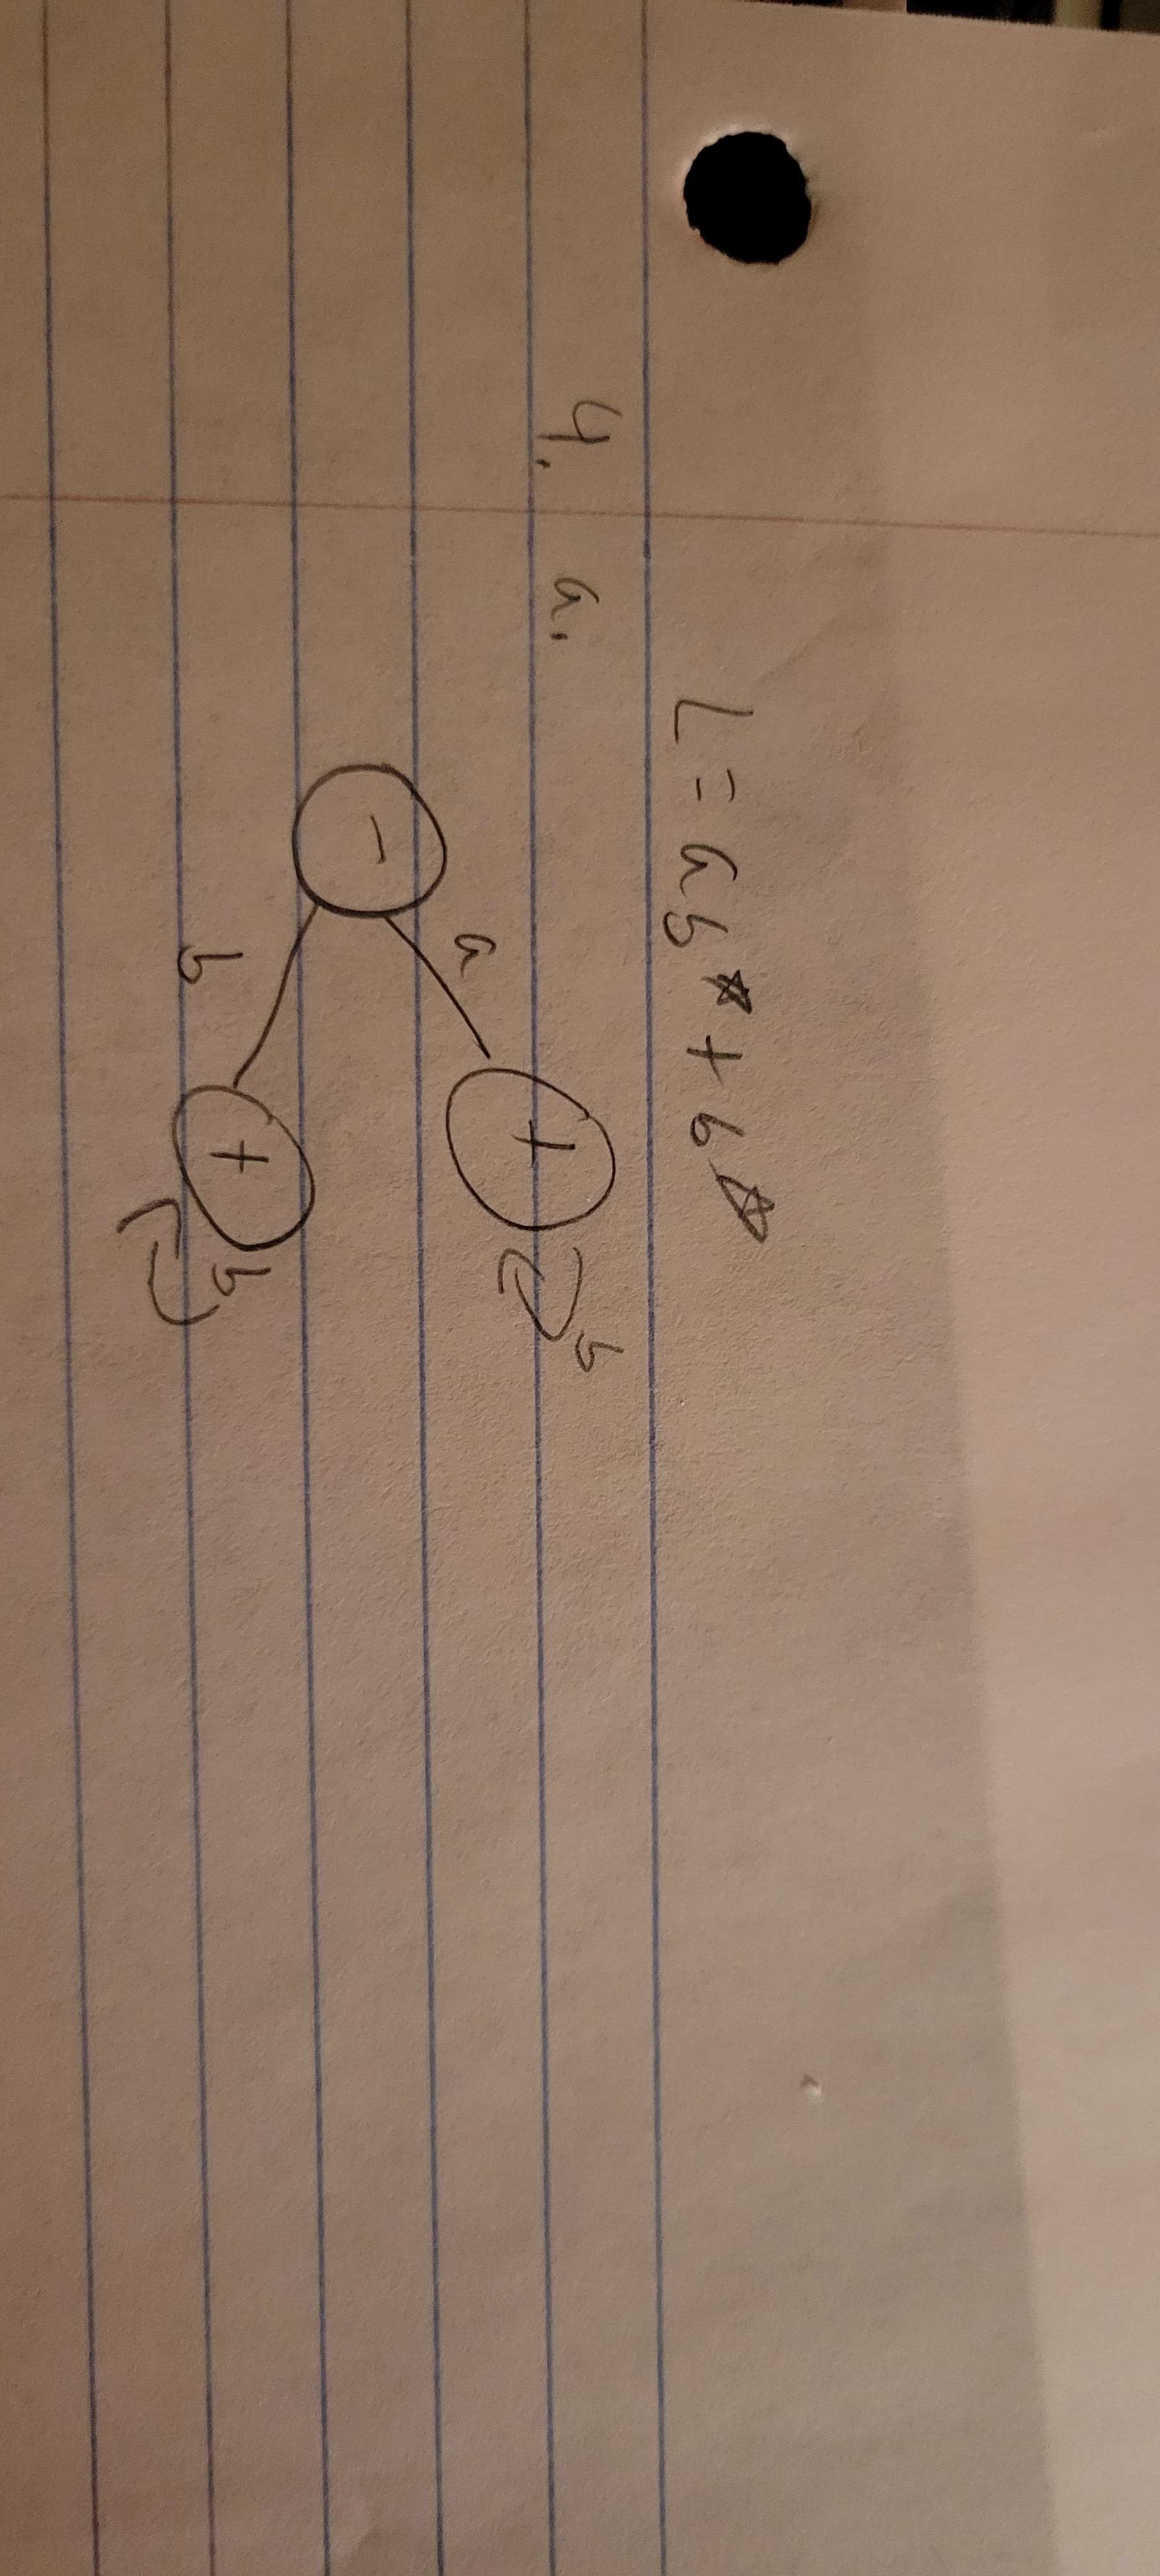 L = ab* + b*
4. a.
+ b
a
-
+ b
b